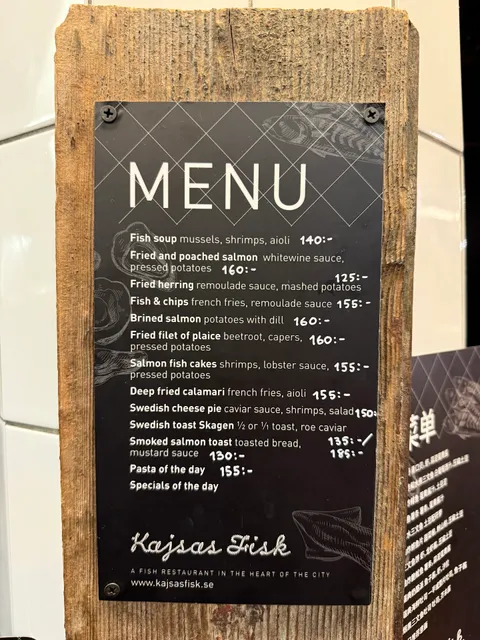 MENU
Fish soup mussels, shrimps, aioli 140:-
Fried and poached salmon whitewine sauce,
pressed potatoes 160:-
125:-
Fried herring remoulade sauce, mashed potatoes
Fish & chips french fries, remoulade sauce 155:-
Brined salmon potatoes with dill 160:-
Fried filet of plaice beetroot, capers, 160:-
pressed potatoes
Salmon fish cakes shrimps, lobster sauce, 155:-
pressed potatoes
Deep fried calamari french fries, aioli 155:-
Swedish cheese pie caviar sauce, shrimps, salad 150:-
Swedish toast Skagen ½ or ¹⁄₁ toast, roe caviar
Smoked salmon toast toasted bread, 135:-/
mustard sauce 130:- 185:-
Pasta of the day 155:-
Specials of the day
Kajsas Fisk
A FISH RESTAURANT IN THE HEART OF THE CITY
www.kajsasfisk.se
菜单